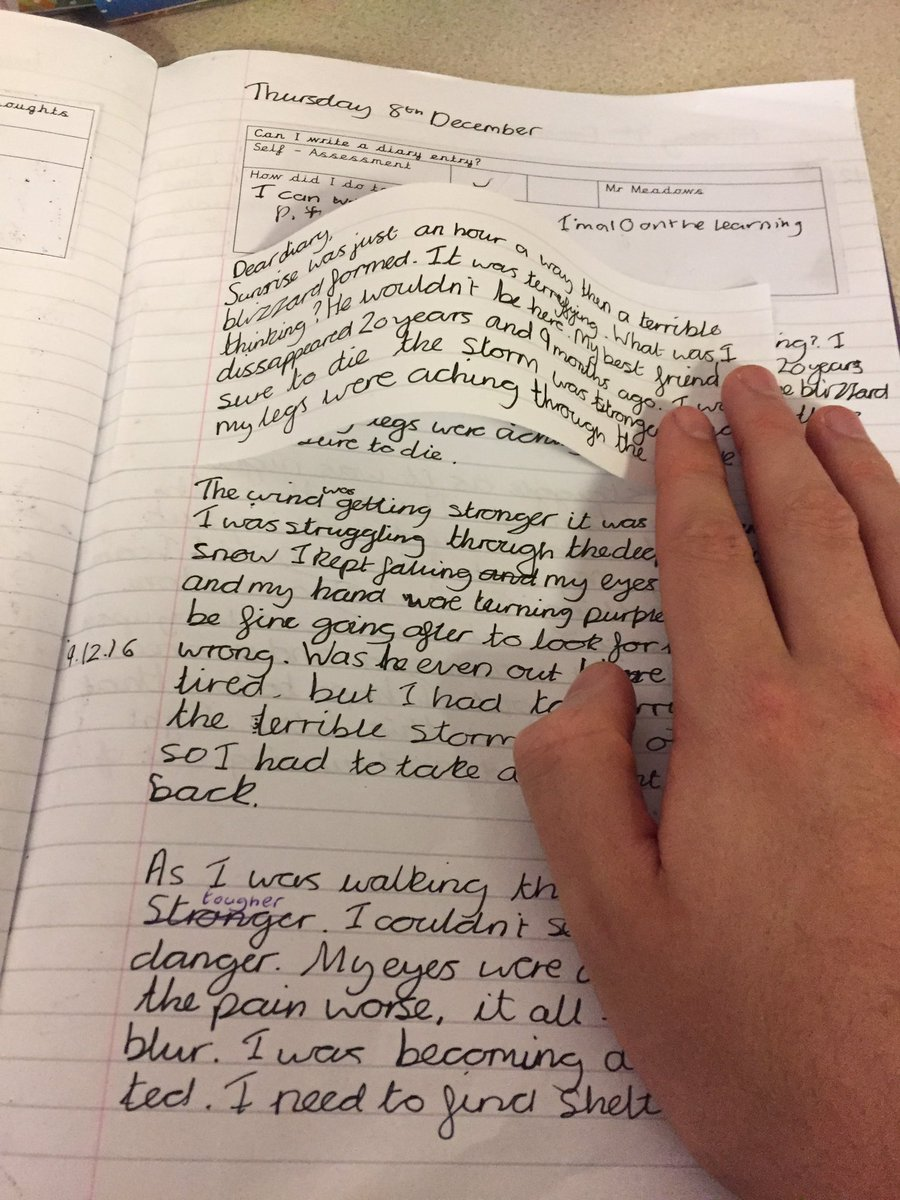 oughts
Thursday 8th December
Can I write a diary entry?
Self - Assessment
How did I do
Mr Meadows
I can
I'm a 10 on the learning
Dear diary,
Sunrise was just an hour a way then a terrible
blizzard formed. It was terrefying. What was I
thinking? He wouldn't be here. My best friend
dissappeared 20 years and 9 months ago. I
sure to die the storm was stronger
my legs were aching through the
ing? I
20 years
blizzard
legs were
sure to die.
The wind was getting stronger it was
I was struggling through the deep
snow I kept falling and my eyes
and my hand wore turning purple
be fine going after to look for
wrong. Was he even out
tired. but I had to
the terrible storm
so I had to take a
back.
9.12.16
As I was walking th
Stronger tougher. I couldn't se
danger. My eyes were
the pain worse, it all
blur. I was becoming
ted. I need to find Shelt